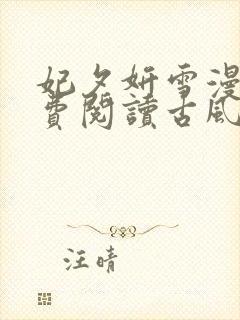 妃夕妍雪漫
費閱讀古風
汪晴